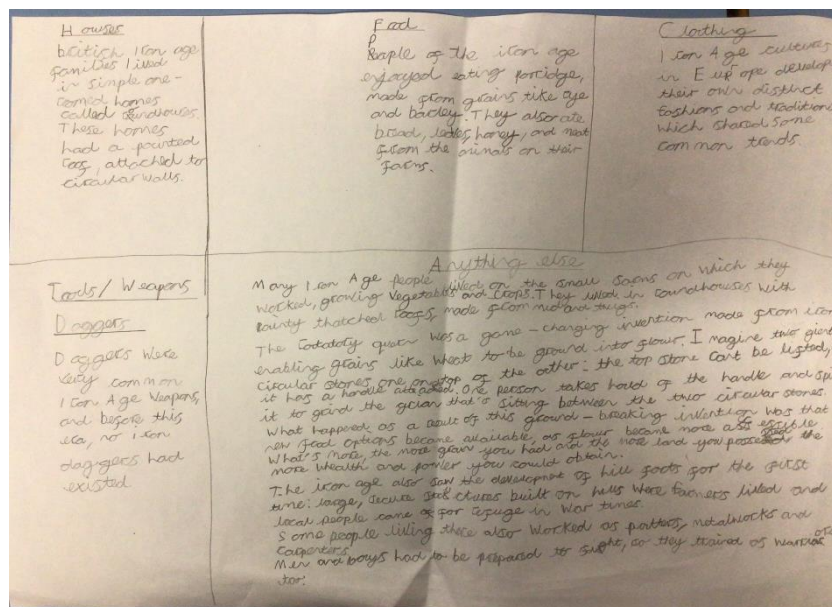 Houses
british Iron age
families lived
in simple one-
roomed homes
called roundhouses.
These homes
had a pointed
roof, attached to
circular walls.
Food
People of the iron age
enjoyed eating porridge,
made from grains like rye
and barley. They also ate
bread, honey, and meat
from the animals on their
farms.
Clothing
Iron Age cultures
in Europe develop
their own distinct
fashions and tradition
which shared some
common trends.
Tools/Weapons
Daggers
Daggers were
very common
Iron Age Weapons,
and before this
era, no iron
daggers had
existed
Anything else
Many Iron Age people lived on the small farms on which they
worked, growing vegetables and crops. They lived in roundhouses with
thatched roofs, made from mud and twigs.
The quern was a game-changing invention made from iron
enabling grains like wheat to be ground into flour. Imagine two giant
circular stones one on top of the other: the top stone can't be lifted,
it has a handle attached. One person takes hold of the handle and spi
it to grind the grian that's sitting between the two circular stones.
What happened as a result of this ground-breaking invention was that
new food options became available, as flower became more
What's more, the more grain you had and the more land you the
more wealth and power you could obtain.
The iron age also saw the development of hill forts for the first
time: large, secure structures built on hills where farmers lived and
local people came for refuge in War times.
Some people living there also worked as potters, metalworks and
carpenters.
Men and boys had to be prepared to fight, so they trained as warrior
too.